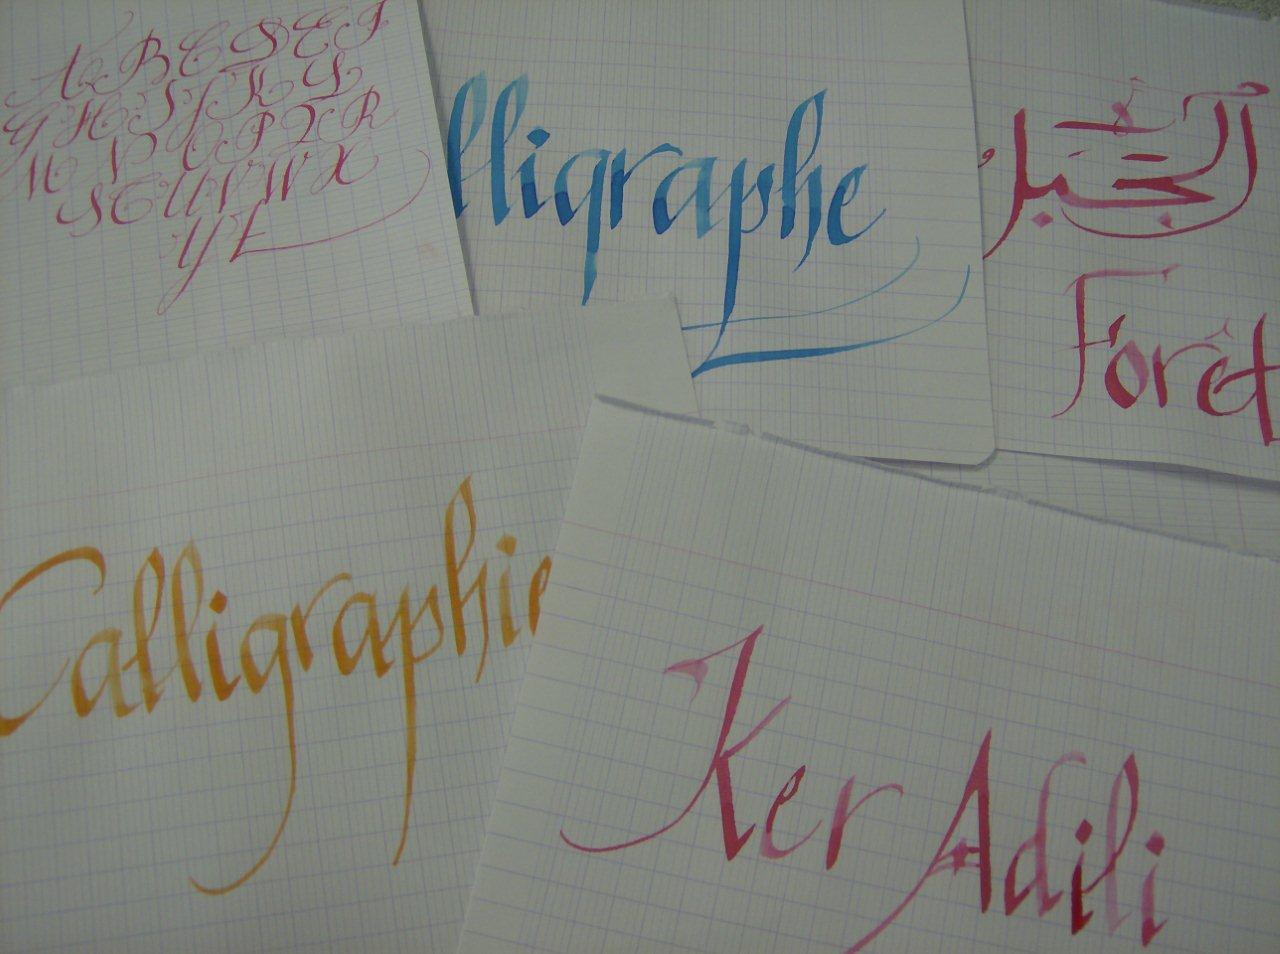 A B C D E F
G H I J K L
M N O P Q R
S T U V W X
Y Z
lligraphe
الجَبَل
Forêt
Calligraphie
Ker Adili